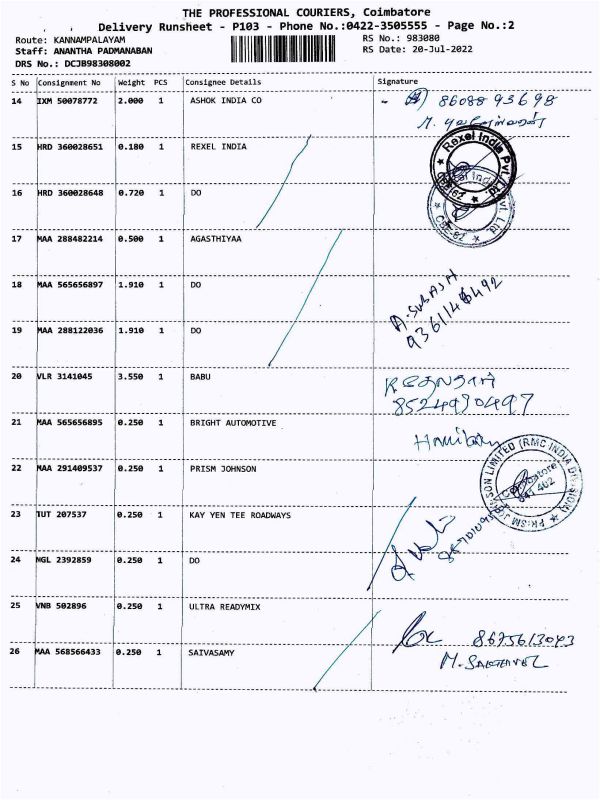 THE PROFESSIONAL COURIERS, Coimbatore
Delivery Runsheet - P103 - Phone No.:0422-3505555 - Page No.:2
Route: KANNAMPALAYAM RS No.: 983080
Staff: ANANTHA PADMANABAN RS Date: 20-Jul-2022
DRS No.: DCJB98308002
S No Consignment No Weight PCS Consignee Details Signature
14 IXM 50078772 2.000 1 ASHOK INDIA CO 86088 93698
15 HRD 360028651 0.180 1 REXEL INDIA Rexel India Pvt. Ltd
16 HRD 360028648 0.720 1 DO
17 MAA 288482214 0.500 1 AGASTHIYAA
18 MAA 565656897 1.910 1 DO A. SUBASH
19 MAA 288122036 1.910 1 DO
20 VLR 3141045 3.550 1 BABU
8524930497
21 MAA 565656895 0.250 1 BRIGHT AUTOMOTIVE
22 MAA 291409537 0.250 1 PRISM JOHNSON PRISM JOHNSON LIMITED (RMC INDIA DIVISION)
Coimbatore
641 402
23 TUT 207537 0.250 1 KAY YEN TEE ROADWAYS
24 NGL 2392859 0.250 1 DO
25 VNB 502896 0.250 1 ULTRA READYMIX 8675613043
26 MAA 568566433 0.250 1 SAIVASAMY M. SAKTHAVEL